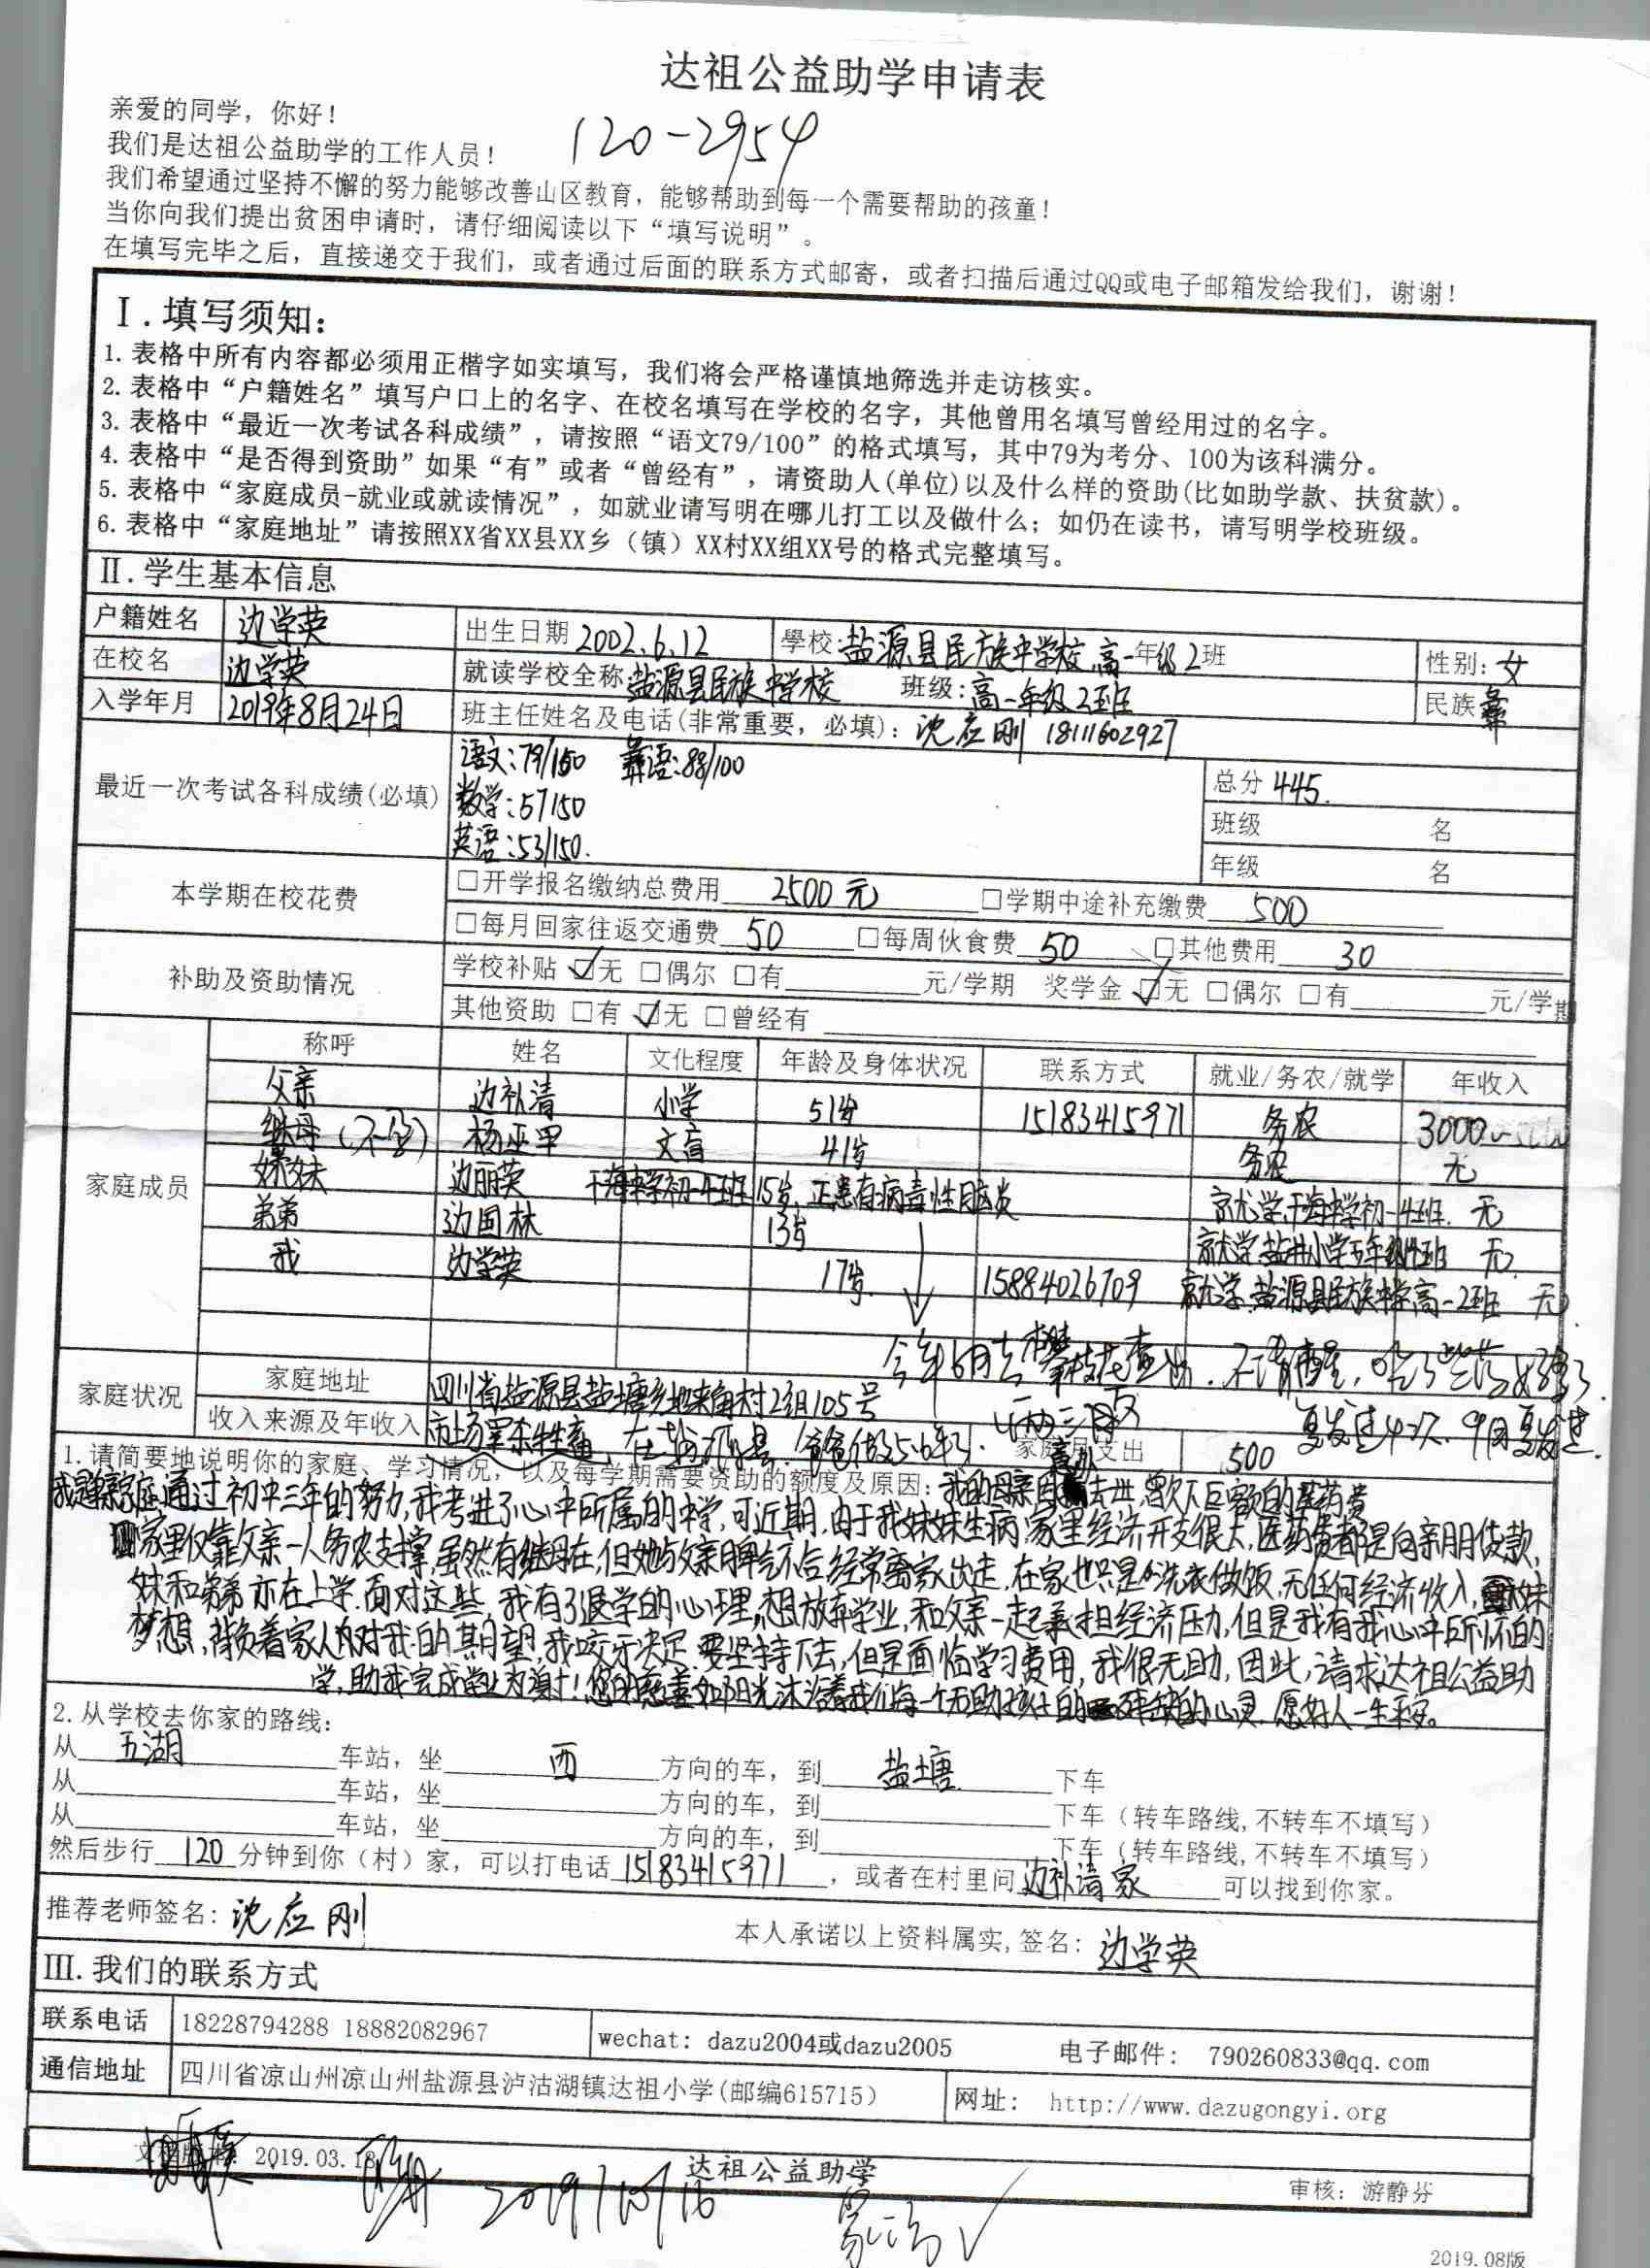 达祖公益助学申请表
120-2954
亲爱的同学，你好！
我们是达祖公益助学的工作人员！
我们希望通过坚持不懈的努力能够改善山区教育，能够帮助到每一个需要帮助的孩童！
当你向我们提出贫困申请时，请仔细阅读以下“填写说明”。
在填写完毕之后，直接递交于我们，或者通过后面的联系方式邮寄，或者扫描后通过QQ或电子邮箱发给我们，谢谢！
Ⅰ.填写须知：
1.表格中所有内容都必须用正楷字如实填写，我们将会严格谨慎地筛选并走访核实。
2.表格中“户籍姓名”填写户口上的名字、在校名填写在学校的名字，其他曾用名填写曾经用过的名字。
3.表格中“最近一次考试各科成绩”，请按照“语文79/100”的格式填写，其中79为考分、100为该科满分。
4.表格中“是否得到资助”如果“有”或者“曾经有”，请资助人(单位)以及什么样的资助(比如助学款、扶贫款)。
5.表格中“家庭成员-就业或就读情况”，如就业请写明在哪儿打工以及做什么；如仍在读书，请写明学校班级。
6.表格中“家庭地址”请按照XX省XX县XX乡（镇）XX村XX组XX号的格式完整填写。
Ⅱ.学生基本信息
户籍姓名 边学英 出生日期 2002.6.12 學校:盐源县民族中学校 高一年级2班 性别:女
在校名 边学英 就读学校全称 盐源县民族中学校 班级:高一年级2班 民族 彝
入学年月 2019年8月24日 班主任姓名及电话(非常重要，必填): 沈应刚 18111602927
最近一次考试各科成绩(必填) 语文:79/150 彝语:88/100 总分 445.
数学:57150 班级 名
英语:53/150. 年级 名
本学期在校花费 □开学报名缴纳总费用 2500元 □学期中途补充缴费 500
□每月回家往返交通费 50 □每周伙食费 50 □其他费用 30
补助及资助情况 学校补贴 ☑无 □偶尔 □有 元/学期 奖学金 ☑无 □偶尔 □有 元/学期
其他资助 □有 ☑无 □曾经有
家庭成员 称呼 姓名 文化程度 年龄及身体状况 联系方式 就业/务农/就学 年收入
父亲 边补清 小学 51岁 15183415971 务农 3000
继母 杨巫甲 文盲 41岁 务农 无
妹妹 边丽英 干海中学初一4班 15岁,正患有病毒性脑炎 就学,干海中学初一4班. 无
弟弟 边国林 13岁 就学.盐井小学五年级4班 无.
我 边学英 17岁. 15884026709 就学.盐源县民族中学高一2班 无
家庭状况 家庭地址 四川省盐源县盐塘乡地来角村2组105号
收入来源及年收入 家庭月支出 500
1.请简要地说明你的家庭、学习情况，以及每学期需要资助的额度及原因: 我的母亲因 去世,曾欠下巨额的医药费
通过初中三年的努力,我考进了心中所属的中学,可近期,由于我妹妹生病,家里经济开支很大,医药费都是向亲朋贷款,
家里仅靠父亲一人务农支撑,虽然有继母在,但她与父亲脾气不合经常离家出走,在家也只是洗衣做饭,无任何经济收入,妹
妹和弟弟亦在上学.面对这些,我有了退学的心理,想放弃学业,和父亲一起承担经济压力,但是我有我心中所怀的
梦想,背负着家人们对我的期望,我咬牙决定要坚持下去,但是面临学习费用,我很无助,因此,请求达祖公益助
学,助我完成学业为谢!您的慈善如阳光沐浴着我们每一个无助孩子的残缺的心灵.愿好人一生平安。
2.从学校去你家的路线:
从 五湖 车站，坐 西 方向的车，到 盐塘 下车
从 车站，坐 方向的车，到 下车（转车路线,不转车不填写）
从 车站，坐 方向的车，到 下车（转车路线,不转车不填写）
然后步行 120 分钟到你（村）家，可以打电话 15183415971 ，或者在村里问 边补清家 可以找到你家。
推荐老师签名: 沈应刚 本人承诺以上资料属实,签名: 边学英
Ⅲ.我们的联系方式
联系电话 18228794288 18882082967 wechat: dazu2004或dazu2005 电子邮件: 790260833@qq.com
通信地址 四川省凉山州凉山州盐源县泸沽湖镇达祖小学(邮编615715) 网址: http://www.dazugongyi.org
文档版本: 2019.03.18 达祖公益助学 审核: 游静芬
2019/10/16
2019.08版